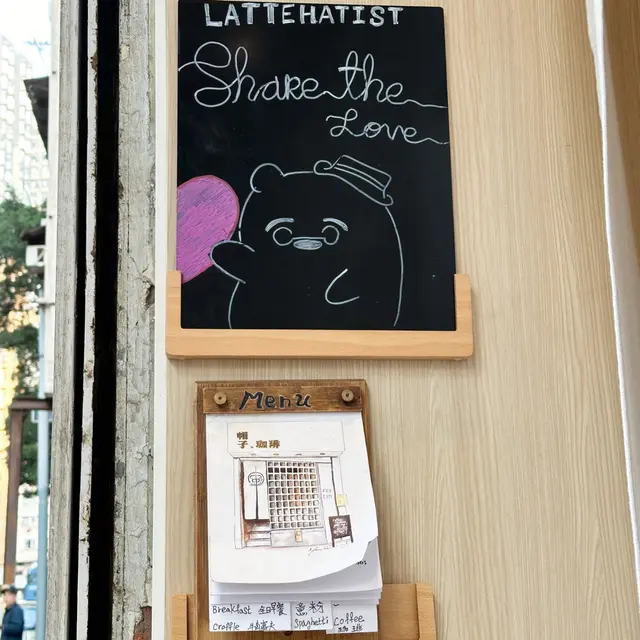 LATTEHATIST
Share the
Love
Menu
帽
子.珈琲
Breakfast 全日早餐
Croffle
意粉
Spaghetti
Coffee
咖啡